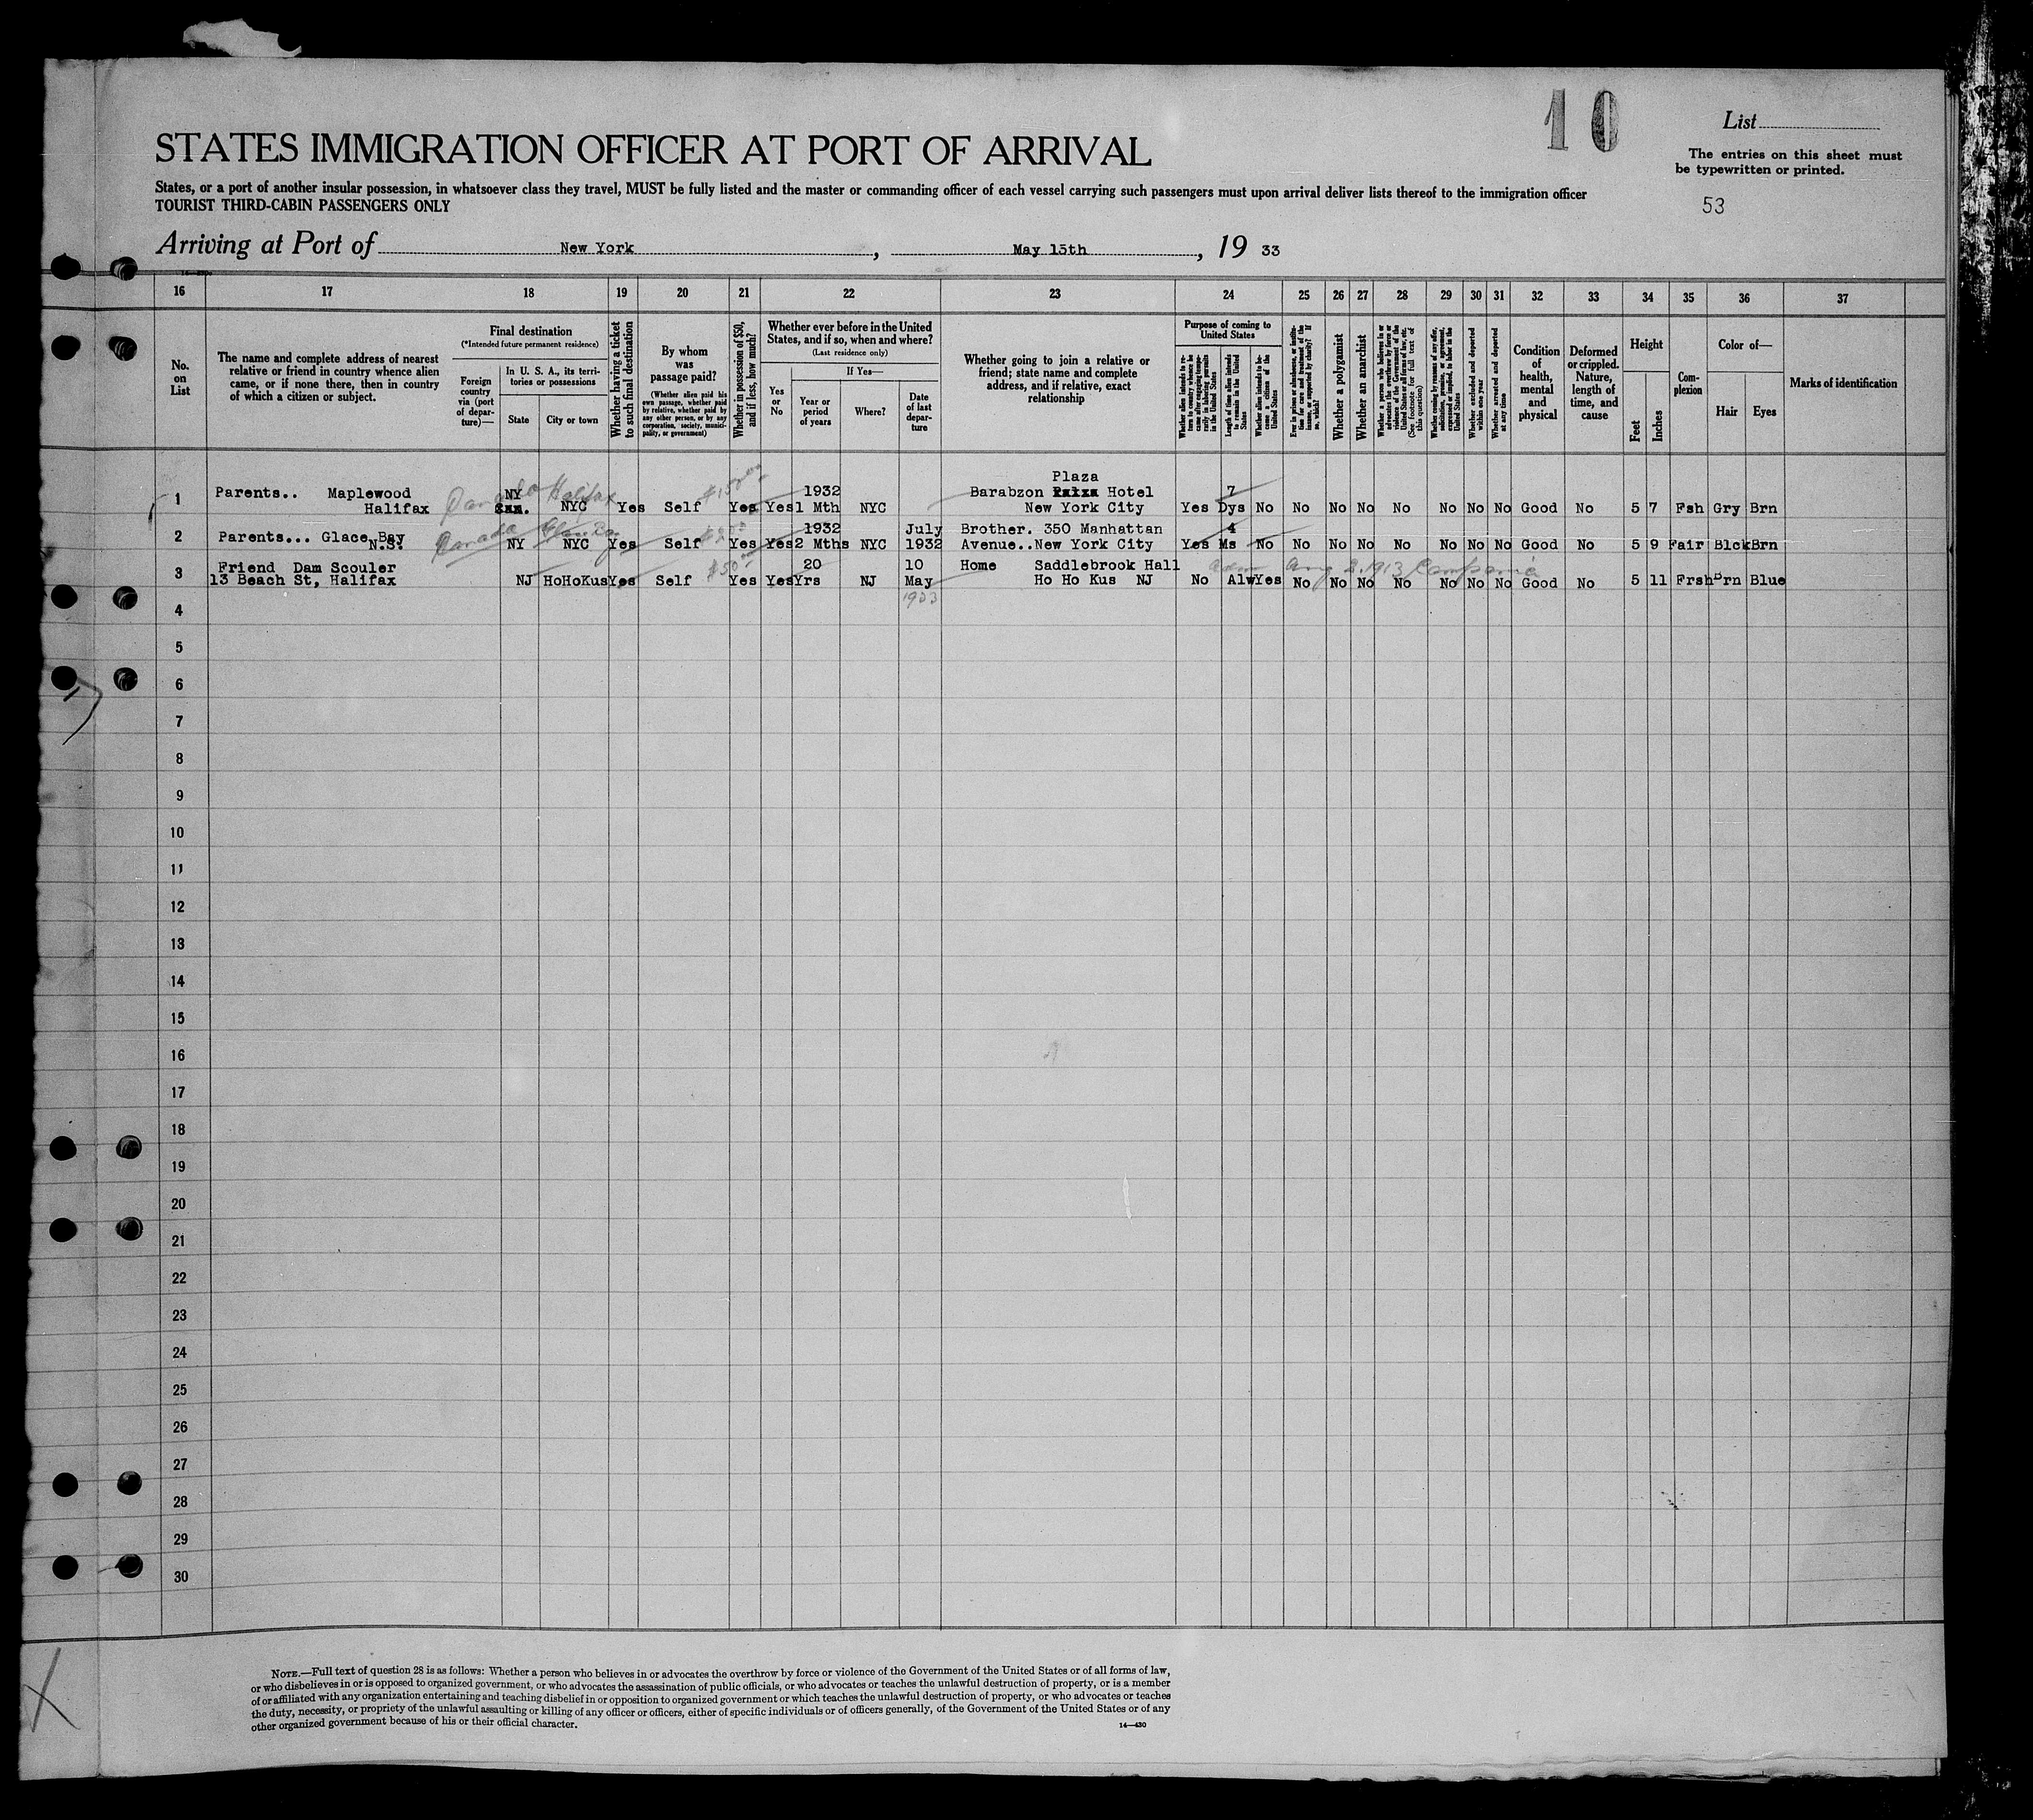 10
List
STATES IMMIGRATION OFFICER AT PORT OF ARRIVAL
The entries on this sheet must
be typewritten or printed.
States, or a port of another insular possession, in whatsoever class they travel, MUST be fully listed and the master or commanding officer of each vessel carrying such passengers must upon arrival deliver lists thereof to the immigration officer
TOURIST THIRD-CABIN PASSENGERS ONLY
53
Arriving at Port of New York, May 15th, 19 33
16 17 18 19 20 21 22 23 24 25 26 27 28 29 30 31 32 33 34 35 36 37
No.
on
List
The name and complete address of nearest
relative or friend in country whence alien
came, or if none there, then in country
of which a citizen or subject.
Final destination
(*Intended future permanent residence)
Foreign
country
via (port
of depar-
ture)—
In U. S. A., its terri-
tories or possessions
State
City or town
Whether having a ticket
to such final destination
By whom
was
passage paid?
(Whether alien paid his
own passage, whether paid
by relative, whether paid by
any other person, or by any
corporation, society, munici-
pality, or government)
Whether in possession of $50,
and if less, how much?
Whether ever before in the United
States, and if so, when and where?
(Last residence only)
Yes
or
No
If Yes—
Year or
period
of years
Where?
Date
of last
depar-
ture
Whether going to join a relative or
friend; state name and complete
address, and if relative, exact
relationship
Purpose of coming to
United States
Whether alien intends to re-
turn to country whence he
came after engaging tempo-
rarily in laboring pursuits
in the United States
Length of time alien intends
to remain in the United
States
Whether alien intends to be-
come a citizen of the
United States
Ever in prison or almshouse, or institu-
tion for care and treatment of the
insane, or supported by charity? If
so, which?
Whether a polygamist
Whether an anarchist
Whether a person who believes in or
advocates the overthrow by force or
violence of the Government of the
United States or all forms of law, etc.
(See footnote for full text of
this question)
Whether coming by reason of any offer,
solicitation, promise, or agreement,
expressed or implied, to labor in the
United States
Whether excluded and deported
within one year
Whether arrested and deported
at any time
Condition
of
health,
mental
and
physical
Deformed
or crippled.
Nature,
length of
time, and
cause
Height
Feet
Inches
Com-
plexion
Color of—
Hair
Eyes
Marks of identification
Plaza
Parents.. Maplewood NY $150 1932 Barabzon Hotel 7
1 Halifax Canada Halifax NYC Yes Self Yes Yes 1 Mth NYC New York City Yes Dys No No No No No No No No Good No 5 7 Fsh Gry Brn
Parents... Glace Bay 1932 July Brother. 350 Manhattan 4
2 N.S. Canada NY NYC Yes Self Yes Yes 2 Mths NYC 1932 Avenue..New York City Yes Ms No No No No No No No No Good No 5 9 Fair Blck Brn
Friend Dam Scouler $50 20 10 Home Saddlebrook Hall adm Aug 2, 1913 Campania
3 13 Beach St, Halifax NJ HoHoKus Yes Self Yes Yes Yrs NJ May Ho Ho Kus NJ No Alw Yes No No No No No No No Good No 5 11 Frsh Brn Blue
1933
4
5
6
7
8
9
10
11
12
13
14
15
16
17
18
19
20
21
22
23
24
25
26
27
28
29
30
NOTE.—Full text of question 28 is as follows: Whether a person who believes in or advocates the overthrow by force or violence of the Government of the United States or of all forms of law,
or who disbelieves in or is opposed to organized government, or who advocates the assassination of public officials, or who advocates or teaches the unlawful destruction of property, or is a member
of or affiliated with any organization entertaining and teaching disbelief in or opposition to organized government or which teaches the unlawful destruction of property, or who advocates or teaches
the duty, necessity, or propriety of the unlawful assaulting or killing of any officer or officers, either of specific individuals or of officers generally, of the Government of the United States or of any
other organized government because of his or their official character.
14—430